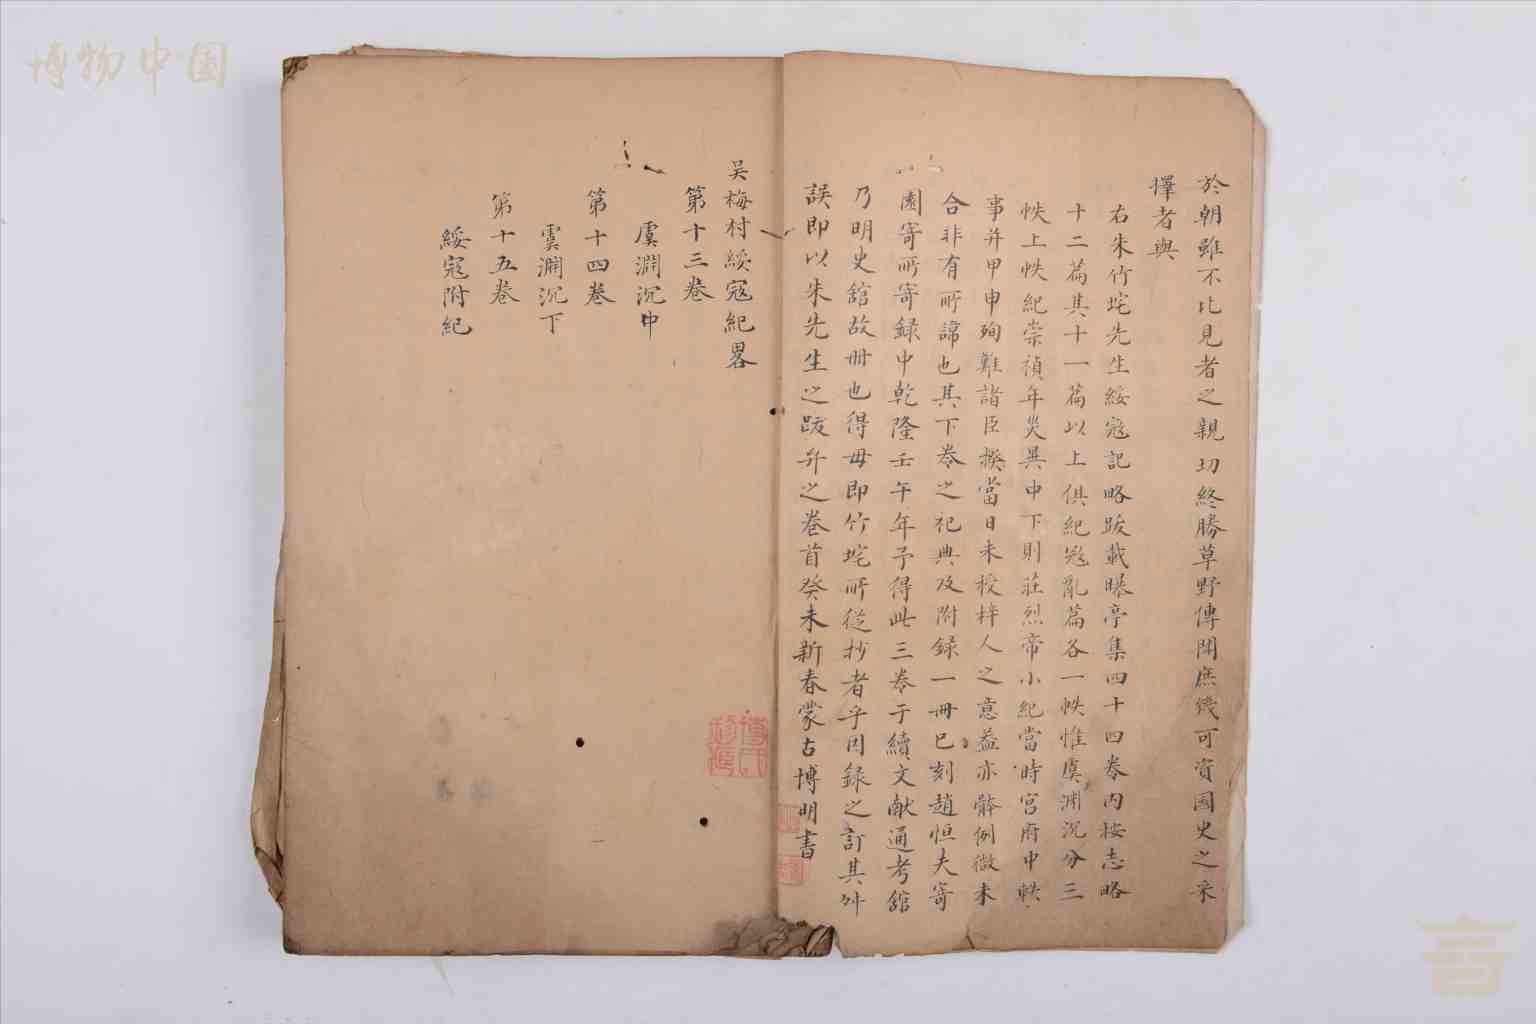 博物中国
於朝雖不比見者之親切終勝草野傳聞庶幾可資國史之采
擇者與
右朱竹垞先生綏寇記略跋載曝亭集四十四卷内按志略
十二篇其十一篇以上俱紀寇亂篇各一帙惟虞淵沉分三
帙上帙紀崇禎年災異中下則莊烈帝小紀當時宮府中軼
事并甲申殉難諸臣撰當日未授梓人之意益亦骵例微未
合非有所諱也其下卷之祀典及附録一冊已刻趙恒夫寄
園寄所寄録中乾隆壬午年予得此三卷于續文献通考舘
乃明史舘故冊也得毋即竹垞所從抄者乎因録之訂其舛
誤即以朱先生之跋弁之卷首癸未新春蒙古博明書
吴梅村綏寇紀畧
第十三卷
虞淵沉中
第十四卷
虞淵沉下
第十五卷
綏寇附紀